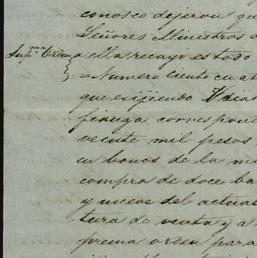 conosco dejeron qu
Señores Ministros d
Supma Orden
a ella recayo es todo
= Numero ciento cuat
que exijiendo
fianza correspon
veinte mil pesos
en bonos de la m
compra de doce ba
y nueve del actua
tura de venta y a
prema orden para